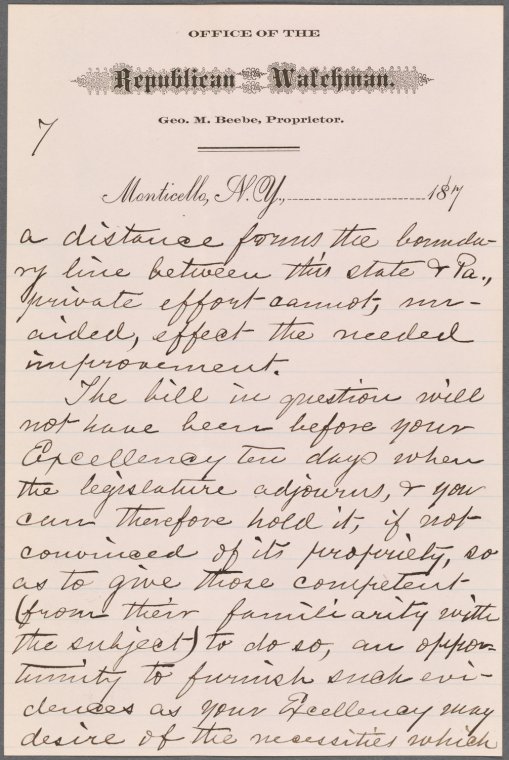 OFFICE OF THE
Republican Watchman.
Geo. M. Beebe, Proprietor.
7
Monticello, N. Y., 187
a distance forms the bounda-
ry line between this state & Pa.,
private effort cannot, un-
aided, effect the needed
improvement.
The bill in question will
not have been before your
Excellency ten days when
the legislature adjourns, & you
can therefore hold it, if not
convinced of its propriety, so
as to give those competent
(from their familiarity with
the subject) to do so, an oppor-
tunity to furnish such evi-
dences as your Excellency may
desire of the necessities which